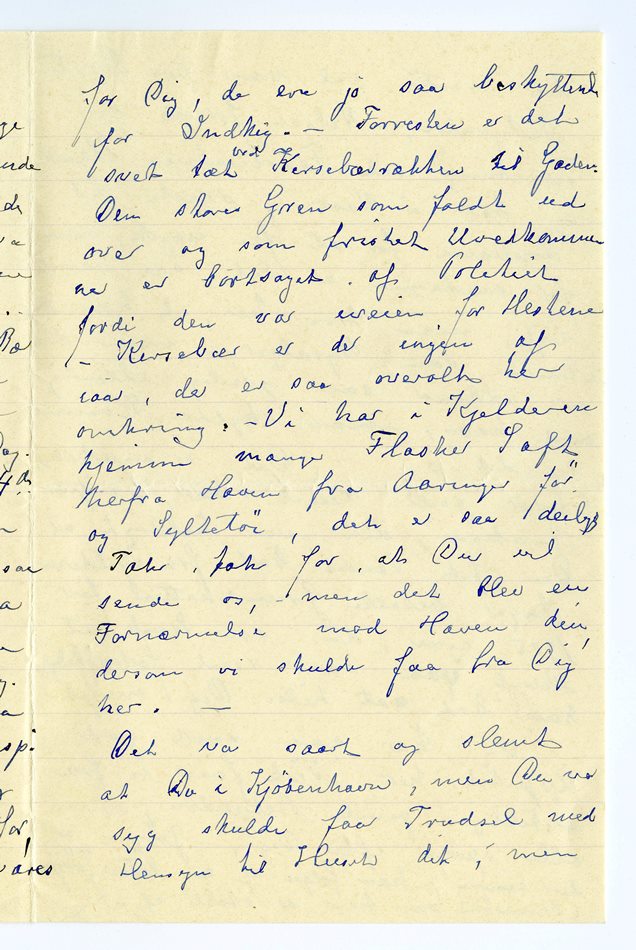 for Dig, de ere jo saa beskyttende
for Indkig. — Forresten er det
svært tæt ved Kersebærrækken til Gaden.
Den store Gren som faldt ud
over og som fristet Uvedkommen
ne er bortsaget af Politiet
fordi den var iveien for Hestene
— Kersebær er der ingen af
iaar, det er saa overalt her
omkring. — Vi har i Kjelderen
hjemme mange Flasker Saft
herfra Haven fra Aaringer før
og Syltetöi, det er saa deiligt
Tak, tak for, at Du vil
sende os, — men det blev en
Fornærmelse mod Haven din,
dersom vi skulde faa fra Dig
her. —
Det va saart og slemt
at Du i Kjöbenhavn, men Du var
syg skulde faa Trudsel med
Hensyn til Huset dit, men
ge
nde
de
Bæ
Dag.
4de
saa
a
for,
våres